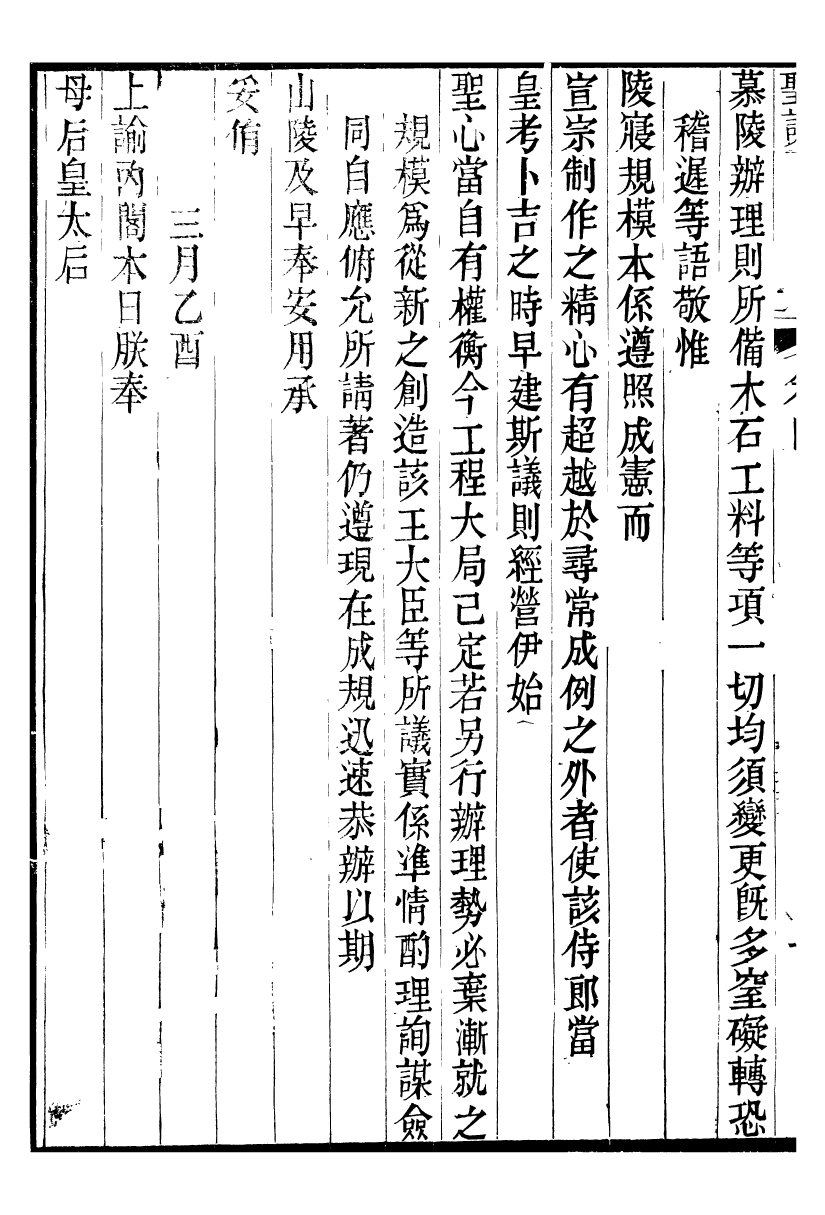 慕陵辦理則所備木石工料等項一切均須變更既多窒礙轉恐
稽遲等語敬惟
陵寢規模本係遵照成憲而
宣宗制作之精心有超越於尋常成例之外者使該侍郎當
皇考卜吉之時早建斯議則經營伊始
聖心當自有權衡今工程大局已定若另行辦理勢必棄漸就之
規模爲從新之創造該王大臣等所議實係準情酌理詢謀僉
同自應俯允所請著仍遵現在成規迅速恭辦以期
山陵及早奉安用承
妥侑
三月乙酉
上諭內閣本日朕奉
母后皇太后